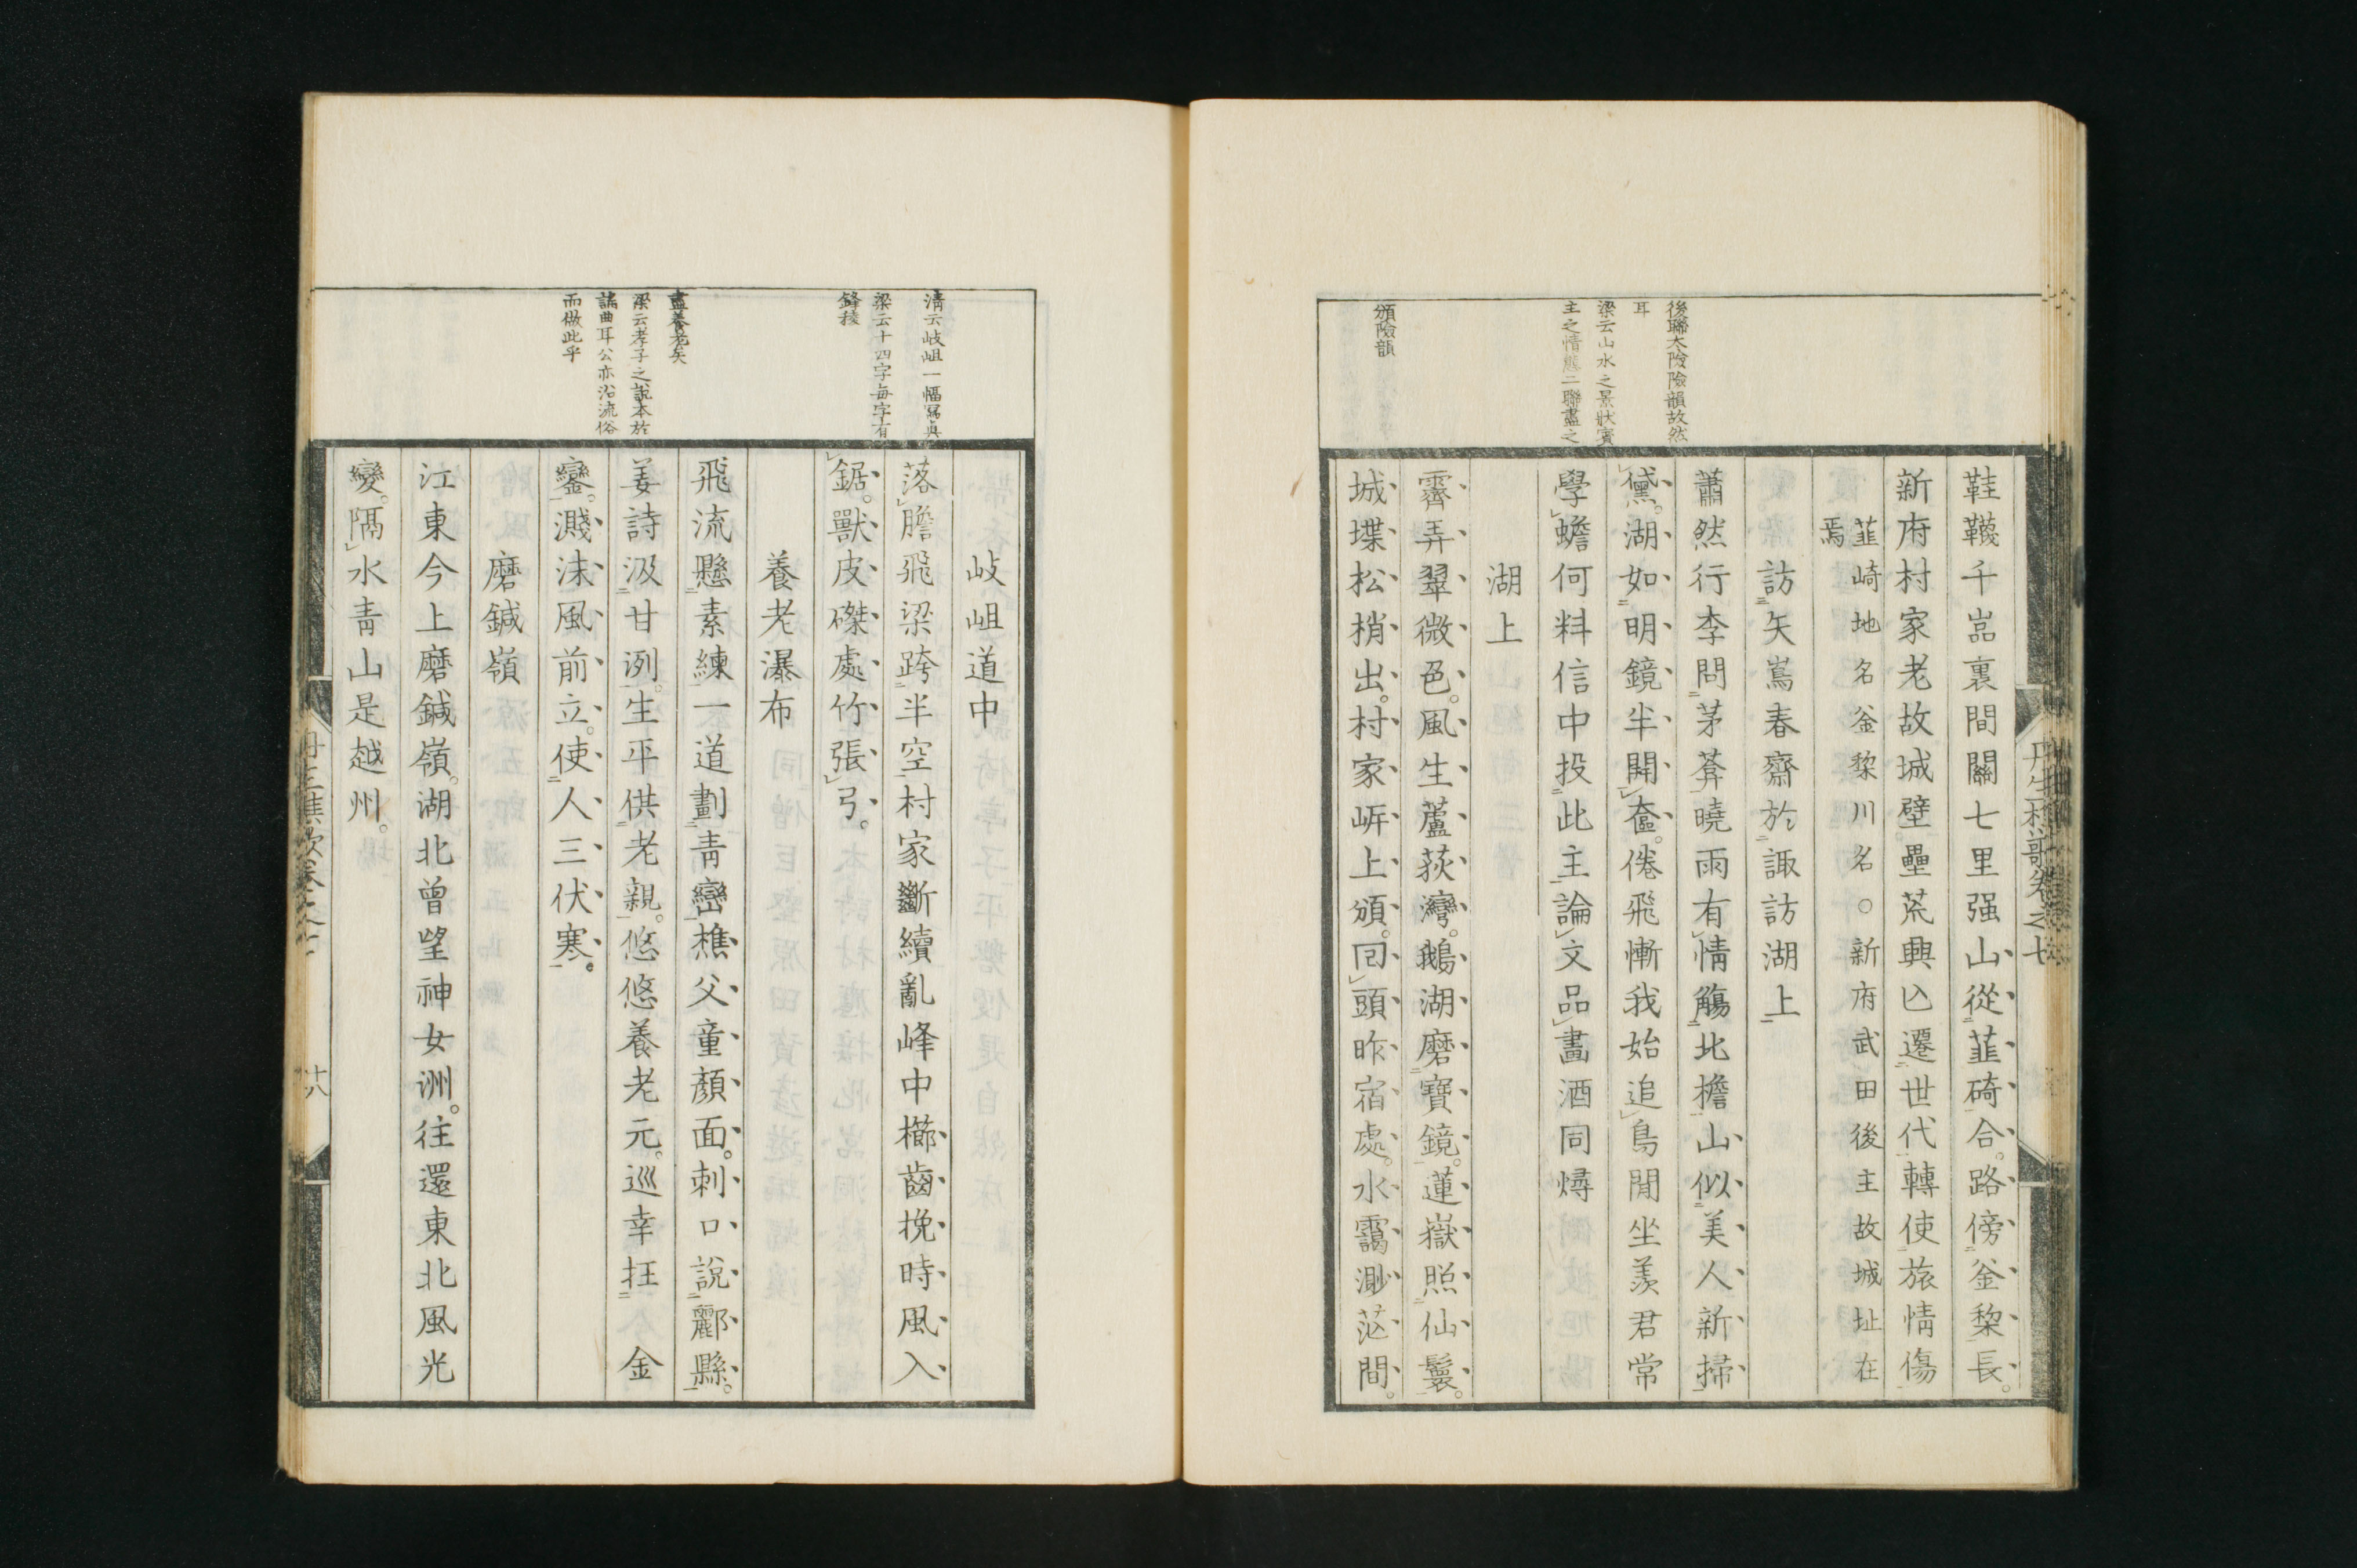 後聯太險險韻故然
耳
梁云山水之景狀賓
主之情態二聯盡之
頒險韻
鞋韈千嵓裏間關七里强山從韮碕合路傍釜棃長
新府村家老故城壁壘荒興亾遷世代轉使旅情傷
韮崎地名釜棃川名○新府武田後主故城址在
焉
訪矢嶌春齋於諏訪湖上
蕭然行李問茅葊曉雨有情觴北檐山似美人新掃
黛湖如明鏡半開奩倦飛慚我始追鳥閒坐羨君常
學蟾何料信中投此主論文品畵酒同燖
湖上
霽弄翠微色風生蘆荻灣鵝湖磨寶鏡蓮嶽照仙鬟
城堞松梢出村家㟁上頒回頭昨宿處水靄渺茫間
丹生樵歌卷之七
淸云岐岨一幅寫眞
梁云十四字每字有
鋒棱
盡養老矣
梁云孝子之說本於
謠曲耳公亦沿流俗
而倣此乎
岐岨道中
落膽飛梁跨半空村家斷續亂峰中櫛齒挽時風入
鋸獸皮磔處竹張弓
養老瀑布
飛流懸素練一道劃靑巒樵父童顏面刺口說酈縣
姜詩汲甘洌生平供老親悠悠養老元巡幸抂金
鑾濺沫風前立使人三伏寒
磨鍼嶺
江東今上磨鍼嶺湖北曾望神女洲往還東北風光
變隔水靑山是越州
十八